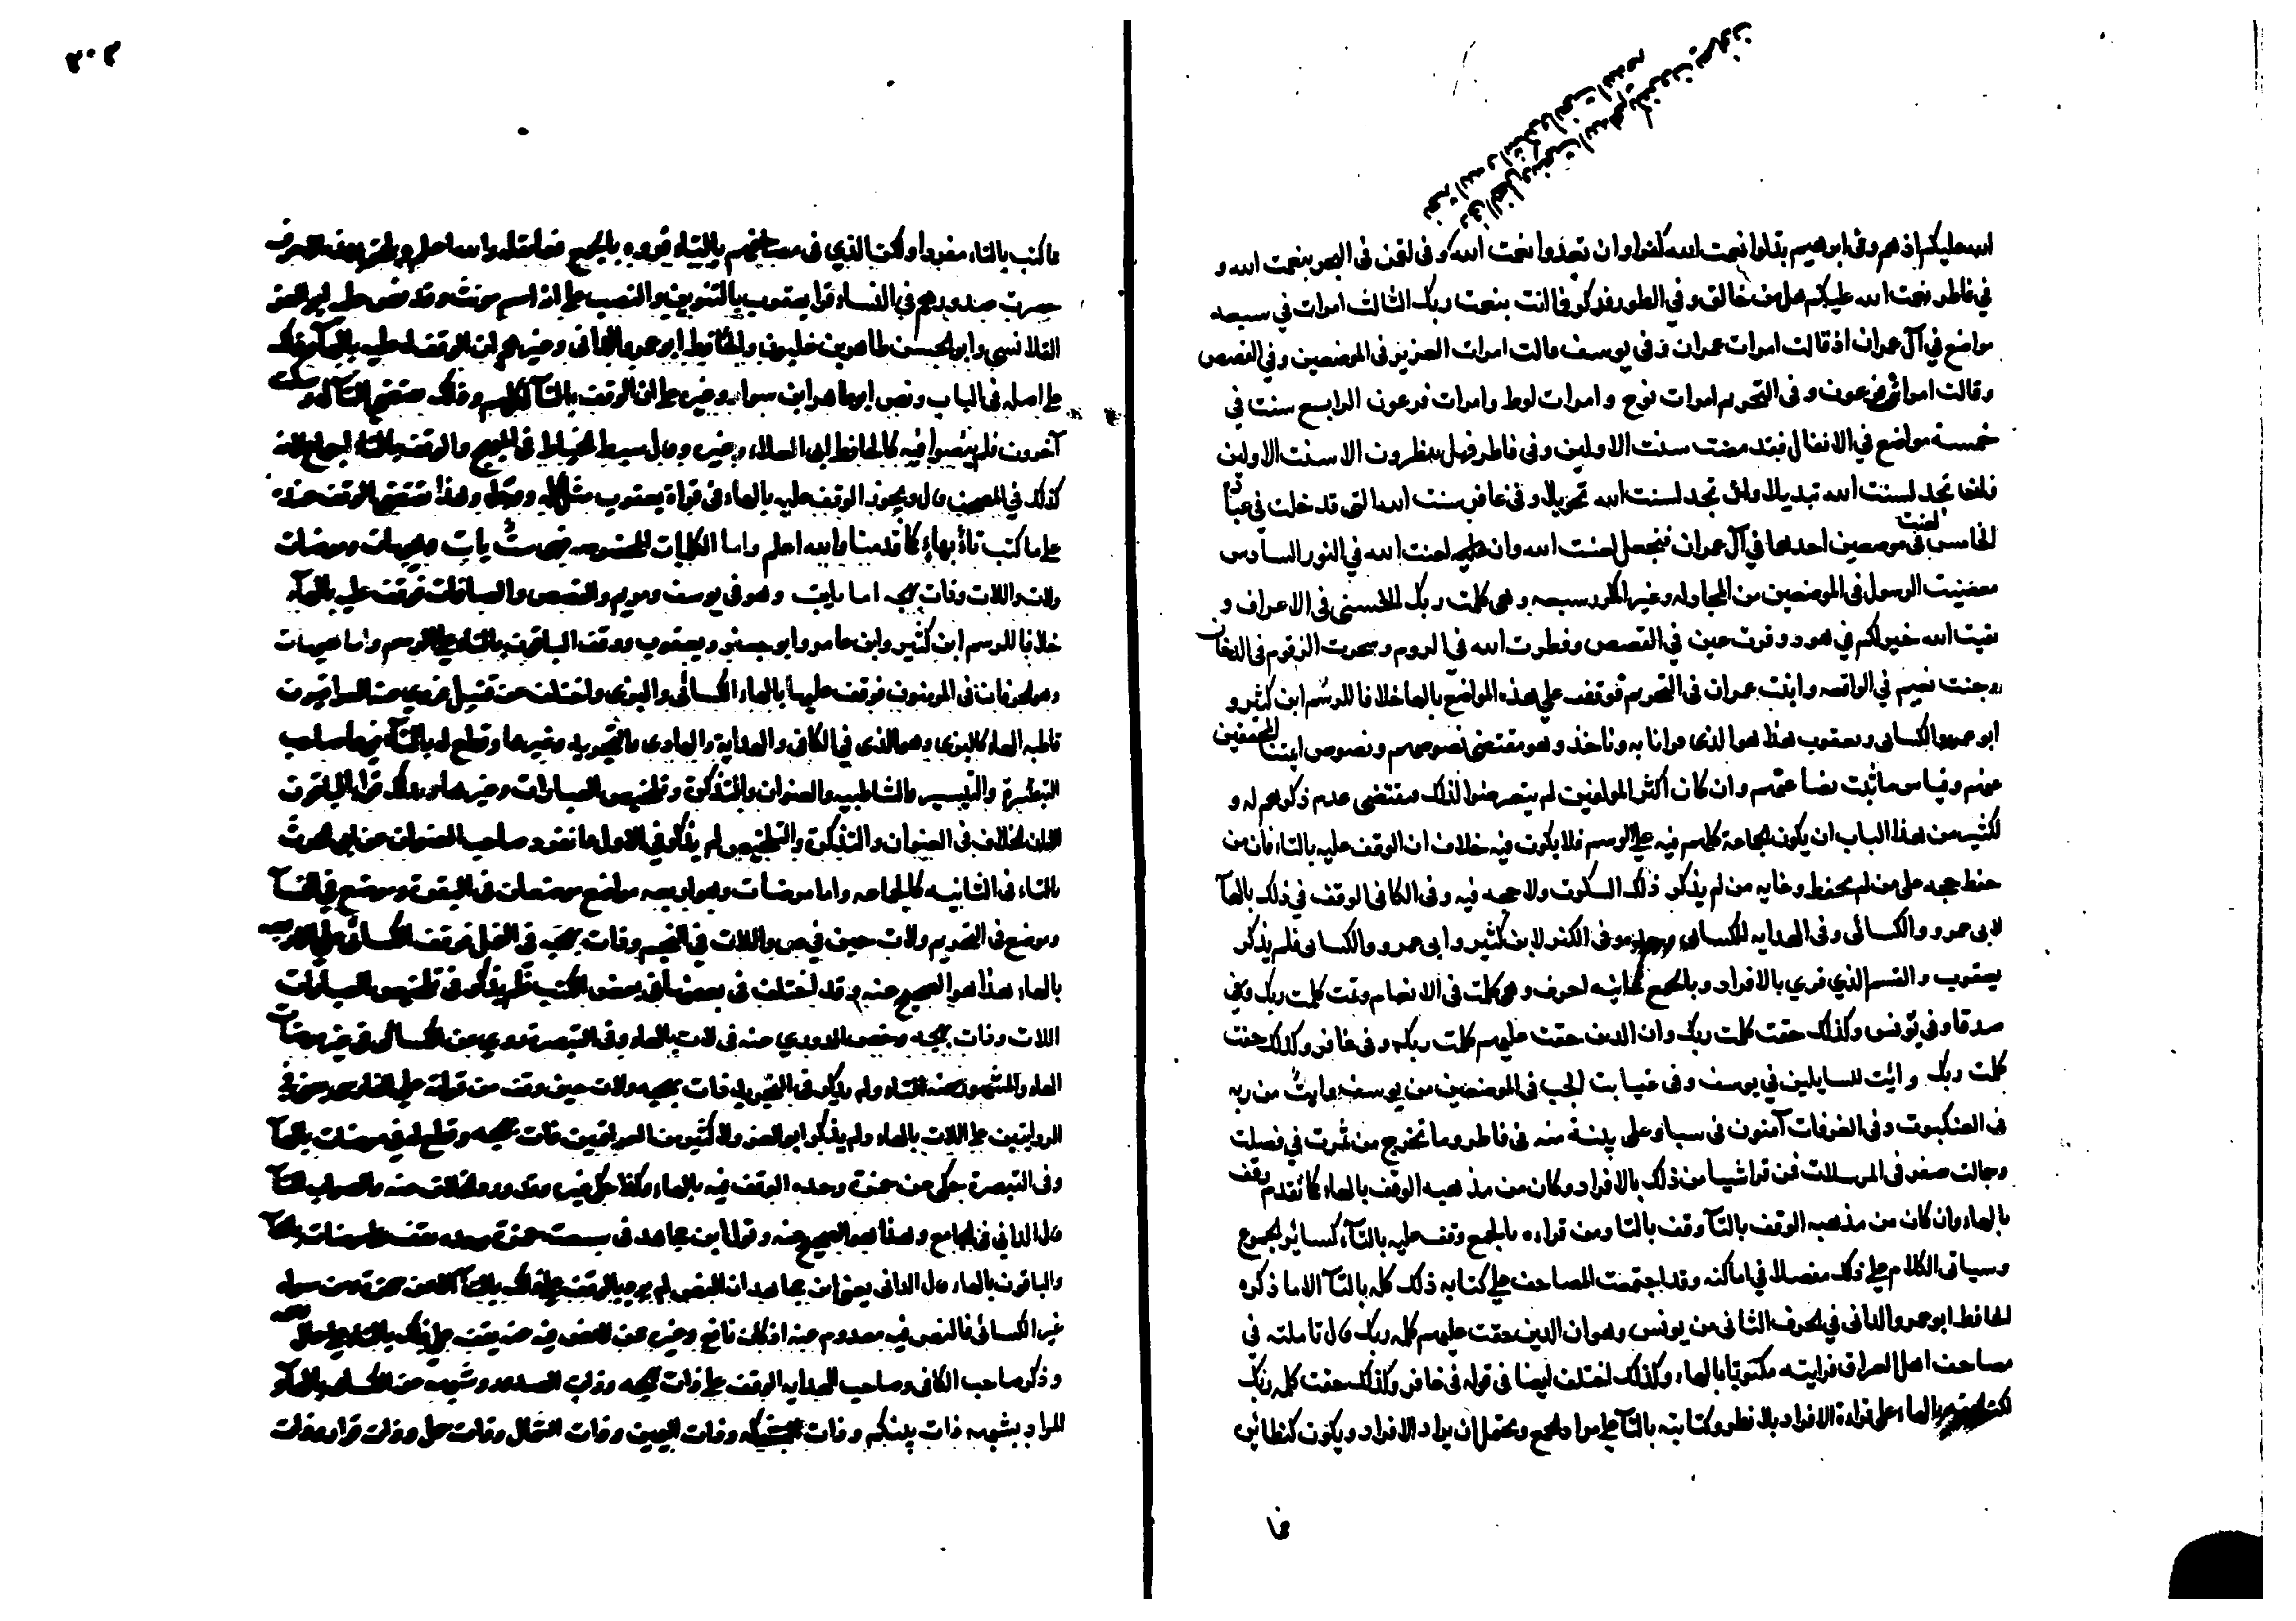 الله عليكم اذ هم وفى ابرهيم بدلوا نعمت الله كفرا وان تعدوا نعمت الله وفى لقمن فى البحر بنعمت الله و
في فاطر نعمت الله عليكم هل من خالق وفي الطور فذكر فما انت بنعمت ربك الثالث امرات في سبعه
مواضع في آل عمران اذ قالت امرات عمران وفى يوسف قالت امرات العزيز فى الموضعين وفي القصص
وقالت امرات فرعون وفى التحريم امرات نوح وامرات لوط وامرات فرعون الرابع سنت في
خمسة مواضع في الانفال فقد مضت سنت الاولين وفى فاطر فهل ينظرون الا سنت الاولين
فلن تجد لسنت الله تبديلا ولن تجد لسنت الله تحويلا وفى غافر سنت الله التى قد خلت فى عباده
الخامس لعنت فى موضعين احدها في آل عمران فنجعل لعنت الله وان لعنت الله في النور السادس
معصيت الرسول فى الموضعين من المجادله وغير المكرر سبعه وهي كلمت ربك الحسنى فى الاعراف و
بقيت الله خير لكم في هود وقرت عين في القصص وفطرت الله في الروم وشجرت الزقوم فى الدخان
وجنت نعيم في الواقعه وابنت عمران فى التحريم فوقف على هذه المواضع بالها خلافا للرسم ابن كثير و
ابو عمرو والكسائى ويعقوب هذا هو الذى قرانا به وناخذ وهو مقتضى نصوصهم ونصوص ايمتنا المحققين
عنهم وقياس ما ثبت نصا عنهم وان كان اكثر المولفين لم يتعرضوا لذلك فمقتضى عدم ذكرهم له و
لكثير من هذا الباب ان يكون الجماعة كلهم فيه على الرسم فلا يكون فيه خلاف ان الوقف عليه بالتاء فان من
حفظ حجه على من لم يحفظ وغايه من لم يذكر ذلك السكوت ولا حجه فيه وفى الكافى الوقف في ذلك بالهآ
لابى عمرو والكسائى وفى الهدايه للكسائى وفى الكنز لابن كثير وابى عمرو والكسائى فلم يذكر
يعقوب والقسم الذي قري بالافراد وبالجمع ثمانيه احرف وهي كلمت فى الانعام وتمت كلمت ربك وفى
صدقا وفى يونس وكذلك حقت كلمت ربك وان الذين حقت عليهم كلمت ربك وفى غافر وكذلك حقت
كلمت ربك وايت للسايلين في يوسف وفى غيابت الجب فى الموضعين من يوسف وايت من ربه
فى العنكبوت وفى الغرفات آمنون فى سبا وعلى بينة منه فى فاطر وما تخرج من ثمرت في فصلت
وجمالت صفر فى المرسلات فمن قرا شيا من ذلك بالافراد وكان من مذهبه الوقف بالهاء كما تقدم وقف
بالهاء وان كان من مذهبه الوقف بالتآ وقف بالتا ومن قراه بالجمع وقف عليه بالتآء كساير الجموع
وسياتى الكلام على ذلك مفصلا في اماكنه وقد اجتمعت المصاحف على كتابه ذلك كله بالتآ الا ما ذكره
الحافظ ابو عمرو الدانى في الحرف الثانى من يونس وهو ان الذين حقت عليهم كلمه ربك قال تاملته في
مصاحف اهل العراق فرايته مكتوبا بالهاء وكذلك اختلف ايضا فى قوله فى غافر وكذلك حقت كلمه ربك
بالهاء على قراءة الافراد بلا نظر وكتابته بالتآ على مراد الجمع ويحتمل ان يراد الافراد ويكون كنظاير
مما
٣٠٢
ما كتب بالتاء مفردا ولكن الذي فى مصاحفهم بالتاء قروه بالجمع فيما نعلمه والله اعلم ويلتحق بهذه الاحرف
حصرت صدورهم في النساء قرا يعقوب بالتنوين والنصب على انه اسم مونث وقد نص عليه ابو العز
القلانسي وابو الحسن طاهر بن غلبون والحافظ ابو عمرو الدانى وغيرهم ان الوقف له عليه بالهآ وذلك
على اصله فى الباب ونص ابو طاهر ابن سوار وغيره على ان الوقف بالتآ لكلهم وذلك يقتضى التآ له وسكت
آخرون فلم ينصوا فيه كالحافظ ابى العلاء وغيره وقال سبط الخياط فى المبهج والوقف بالتاء اجماع لانه
كذلك في المصحف قال ويجوز الوقف عليه بالهاء فى قراة يعقوب مثل وهذا يقتضى الوقف عنده
على ما كتب تاؤ بهاء كما قدمنا والله اعلم واما الكلمات المخصوصه فهي ست يابت وهيهات ومرضات
ولات واللات وذات بهجه اما يابت وهو فى يوسف ومريم والقصص والصافات فوقف عليه بالهآء
خلافا للرسم ابن كثير وابن عامر وابو جعفر ويعقوب ووقف الباقون بالتاء على الرسم واما هيهات
وهو الحرفان فى المومنون فوقف عليهما بالهاء الكسائى والبزى واختلف عن قنبل فروي عنه العراقيون
قاطبه الهاء كالبزى وهو الذى في الكافى والهداية والهادى والتجريد وغيرها وقطع له بالتآ فيهما صاحب
التبصرة والتيسير والشاطبيه والعنوان والتذكرة وتلخيص العبارات وغيرها وبذلك قرا الباقون
الا ان الخلاف فى العنوان والتذكرة والتلخيص لم يذكر في الاول وانفرد صاحب العنوان عن ابى الحرث
بالتاء فى الثانيه كالجماعه واما مرضات وهو اربعه مواضع موضعان فى البقرة وموضع في النسآ
وموضع فى التحريم ولات حين في ص واللات في النجم وذات بهجه فى النمل فوقف الكسائى على الاربعه
بالهاء هذا هو الصحيح عنه وقد اختلف فى بعضها فى بعض الكتب فلم يذكر فى تلخيص العبارات
اللات وذات بهجه وخص الدوري عنه فى لات بالهاء وفى التبصرة روي عن الكسائى فى غير مرضات
الهاء والمشهور عنه التاء ولم يذكر فى التجريد ذات بهجه ولات حين وقف من قراته على الفارسى
الروايتين على اللات بالهاء ولم يذكر ابو العز ولا كثير من العراقيين ذات بهجه وقطع له في مرضات بالهآ
وفى التبصرة حكى عن حمزة وحده الوقف فيه بالهاء وكذا حكى غيره وقد ورد الخلاف عنه والصواب التآ
قال الدانى في الجامع وهذا هو الصحيح عنه وقول ابن مجاهد فى سبعته حمزة وحده يقف على مرضات بالتآ
والباقون بالهاء قال الدانى يعنى ابن مجاهد ان النص لم يرد بالوقف على ذلك بالتآ الا عن حمزة ومن سواه
غير الكسائى فالنص فيه معدوم عنه اذ كان نافع وغيره عن النص فيه عنه يقف على ذلك بالتاء على حال
وذكر صاحب الكافى وصاحب الهدايه الوقف على ذات بهجه وذات الصدور وشبهه عن الكسائى بالهآ و
المراد بشبهه ذات بينكم وذات الشوكه وذات اليمين وذات الشمال وذات حمل وذات قرار وذات